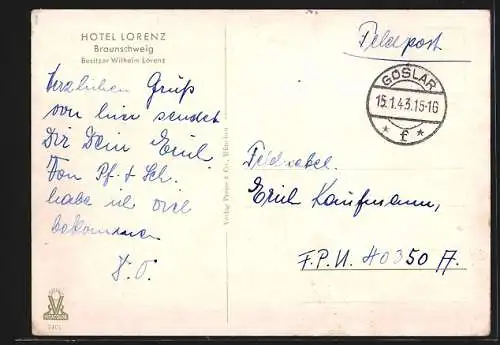 HOTEL LORENZ
Braunschweig
Besitzer Wilhelm Lorenz
Herzlichen Gruß
von hier sendet
Dir Dein Emil.
Von Pf. + Sch.
habe ich viel
bekommen
D. O.
Verlag Popp
Feldpost
GOSLAR
15.1.43.15-16
* f *
Feldwebel
Erich Kaufmann,
F.P.N. 40350 A.